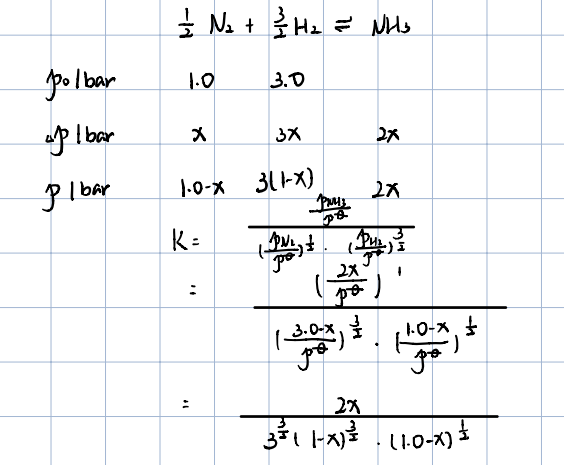 ½ N₂ + 3/2 H₂ ⇌ NH₃
p₀/bar 1.0 3.0
Δp/bar x 3x 2x
p/bar 1.0-x 3(1-x) 2x
K = (p_NH₃/p^θ) / ((p_N₂/p^θ)^½ · (p_H₂/p^θ)^3/2)
= (2x/p^θ)^1 / ((3.0-x/p^θ)^3/2 · (1.0-x/p^θ)^½)
= 2x / (3^3/2 (1-x)^3/2 · (1.0-x)^½)